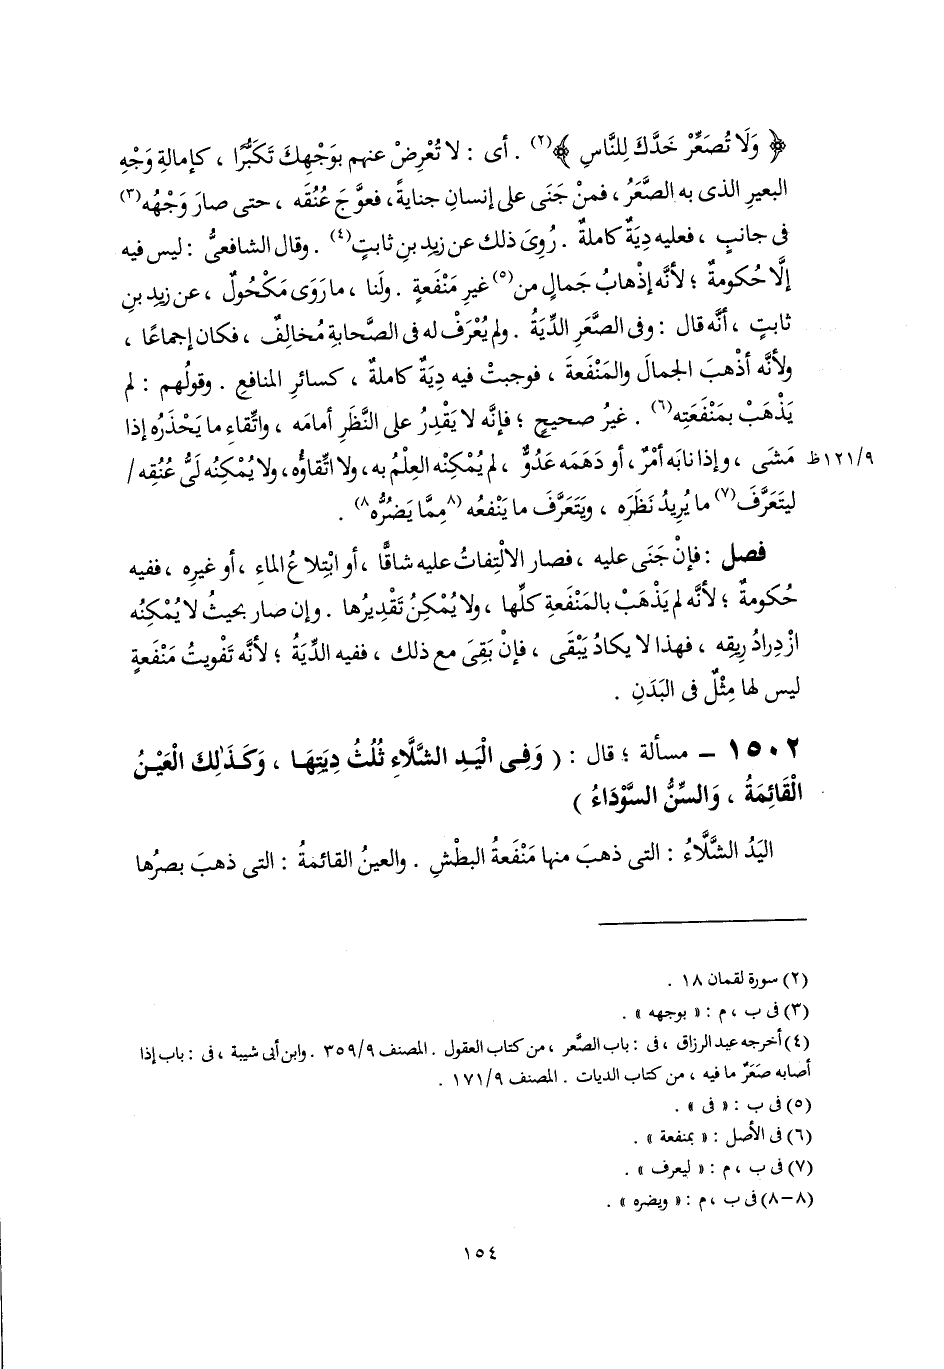 ﴿ وَلَا تُصَعِّرْ خَدَّكَ لِلنَّاسِ ﴾(٢) . أى : لا تُعْرِضْ عنهم بوَجْهِكَ تَكَبُّرًا ، كإمالةِ وَجْهِ
البعيرِ الذى به الصَّعَرُ ، فمنْ جَنَى على إنسانٍ جنايةً، فعوَّجَ عُنُقَه ، حتى صارَ وَجْهُه(٣)
فى جانبٍ ، فعليه دِيَةٌ كاملةٌ . رُوِىَ ذلك عن زيدِ بنِ ثابتٍ(٤) . وقال الشافعىُّ : ليس فيه
إلَّا حُكومةٌ ؛ لأنَّه إذْهابُ جَمالٍ من(٥) غيرِ مَنْفَعةٍ . ولَنا ، ما رَوَى مَكْحُولٌ ، عن زيدِ بنِ
ثابتٍ ، أنَّه قال : وفى الصَّعَرِ الدِّيَةُ . ولم يُعْرَفْ له فى الصَّحابةِ مُخالِفٌ ، فكان إجماعًا ،
ولأنَّه أذْهبَ الجمالَ والمَنْفَعةَ ، فوجبتْ فيه دِيَةٌ كاملةٌ ، كسائرِ المنافعِ . وقولُهم : لم
يَذْهَبْ بمَنْفَعَتِه(٦) . غيرُ صحيحٍ ؛ فإنَّه لا يَقْدِرُ على النَّظَرِ أمامَه ، واتِّقاءِ ما يَحْذَرُه إذا
١٢١/٩ظ مَشَى ، وإذا نابَه أمْرٌ ، أو دَهَمَه عَدُوٌّ ، لم يُمْكِنْه العِلْمُ به، ولا اتِّقاؤُه، ولا يُمْكِنُه لَىُّ عُنُقِه /
ليتَعَرَّفَ(٧) ما يُرِيدُ نَظَرَه ، ويَتَعَرَّفَ ما يَنْفعُه (٨مِمَّا يَضُرُّه٨) .
فصل : فإنْ جَنَى عليه ، فصار الالْتِفاتُ عليه شاقًّا ، أو ابْتِلاعُ الماءِ ، أو غيرِه ، ففيه
حُكومةٌ ؛ لأنَّه لم يَذْهَبْ بالمَنْفَعةِ كلِّها ، ولا يُمْكِنُ تَقْدِيرُها . وإن صار بحيثُ لا يُمْكِنُه
ازْدِرادُ رِيقِه ، فهذا لا يكادُ يَبْقَى ، فإنْ بَقِىَ مع ذلك ، ففيه الدِّيَةُ ؛ لأنَّه تَفْويتُ مَنْفعةٍ
ليس لها مِثْلٌ فى البَدَنِ .
١٥٠٢ – مسألة ؛ قال : ( وَفِى الْيَدِ الشَّلَّاءِ ثُلُثُ دِيَتِهَا ، وَكَذَٰلِكَ الْعَيْنُ
الْقَائِمَةُ ، وَالسِّنُّ السَّوْدَاءُ )
اليَدُ الشَّلَّاءُ : التى ذهبَ منها مَنْفَعةُ البطْشِ . والعينُ القائمةُ : التى ذهبَ بصرُها
(٢) سورة لقمان ١٨ .
(٣) فى ب ، م : « بوجهه » .
(٤) أخرجه عبد الرزاق ، فى : باب الصَّعر ، من كتاب العقول . المصنف ٣٥٩/٩ . وابن أبى شيبة ، فى : باب إذا
أصابه صَعَرٌ ما فيه ، من كتاب الديات . المصنف ١٧١/٩ .
(٥) فى ب : « فى » .
(٦) فى الأصل : « بمنفعة » .
(٧) فى ب ، م : « ليعرف » .
(٨–٨) فى ب ، م : « ويضره » .
١٥٤